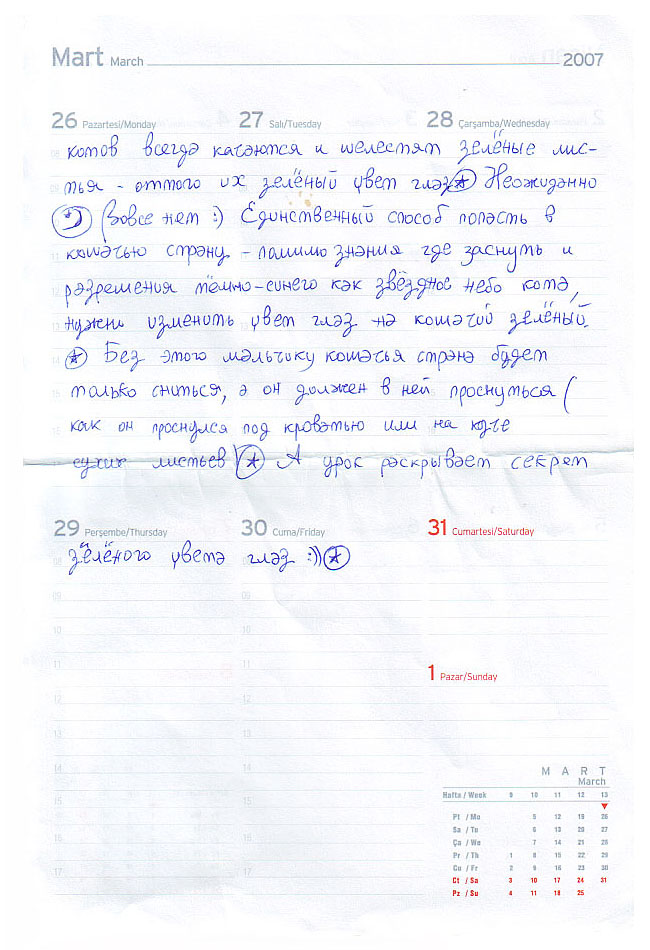 Mart March 2007
26 Pazartesi/Monday 27 Salı/Tuesday 28 Çarşamba/Wednesday
котов всегда качаются и шелестят зелёные лис-
тья - оттого их зелёный цвет глаз * Неожиданно
:) (Вовсе нет :) Единственный способ попасть в
кошачью страну - помимо знания где заснуть и
разрешения тёмно-синего как звёздное небо кота,
нужно изменить цвет глаз на кошачий зелёный.
* Без этого мальчику кошачья страна будет
только сниться, а он должен в ней проснуться (
как он проснулся под кроватью или на куче
сухих листьев) * А урок раскрывает секрет
29 Perşembe/Thursday 30 Cuma/Friday 31 Cumartesi/Saturday
зелёного цвета глаз :)) *
1 Pazar/Sunday
M A R T
March
Hafta / Week 9 10 11 12 13
Pt / Mo 5 12 19 26
Sa / Tu 6 13 20 27
Ça / We 7 14 21 28
Pr / Th 1 8 15 22 29
Cu / Fr 2 9 16 23 30
Ct / Sa 3 10 17 24 31
Pz / Su 4 11 18 25